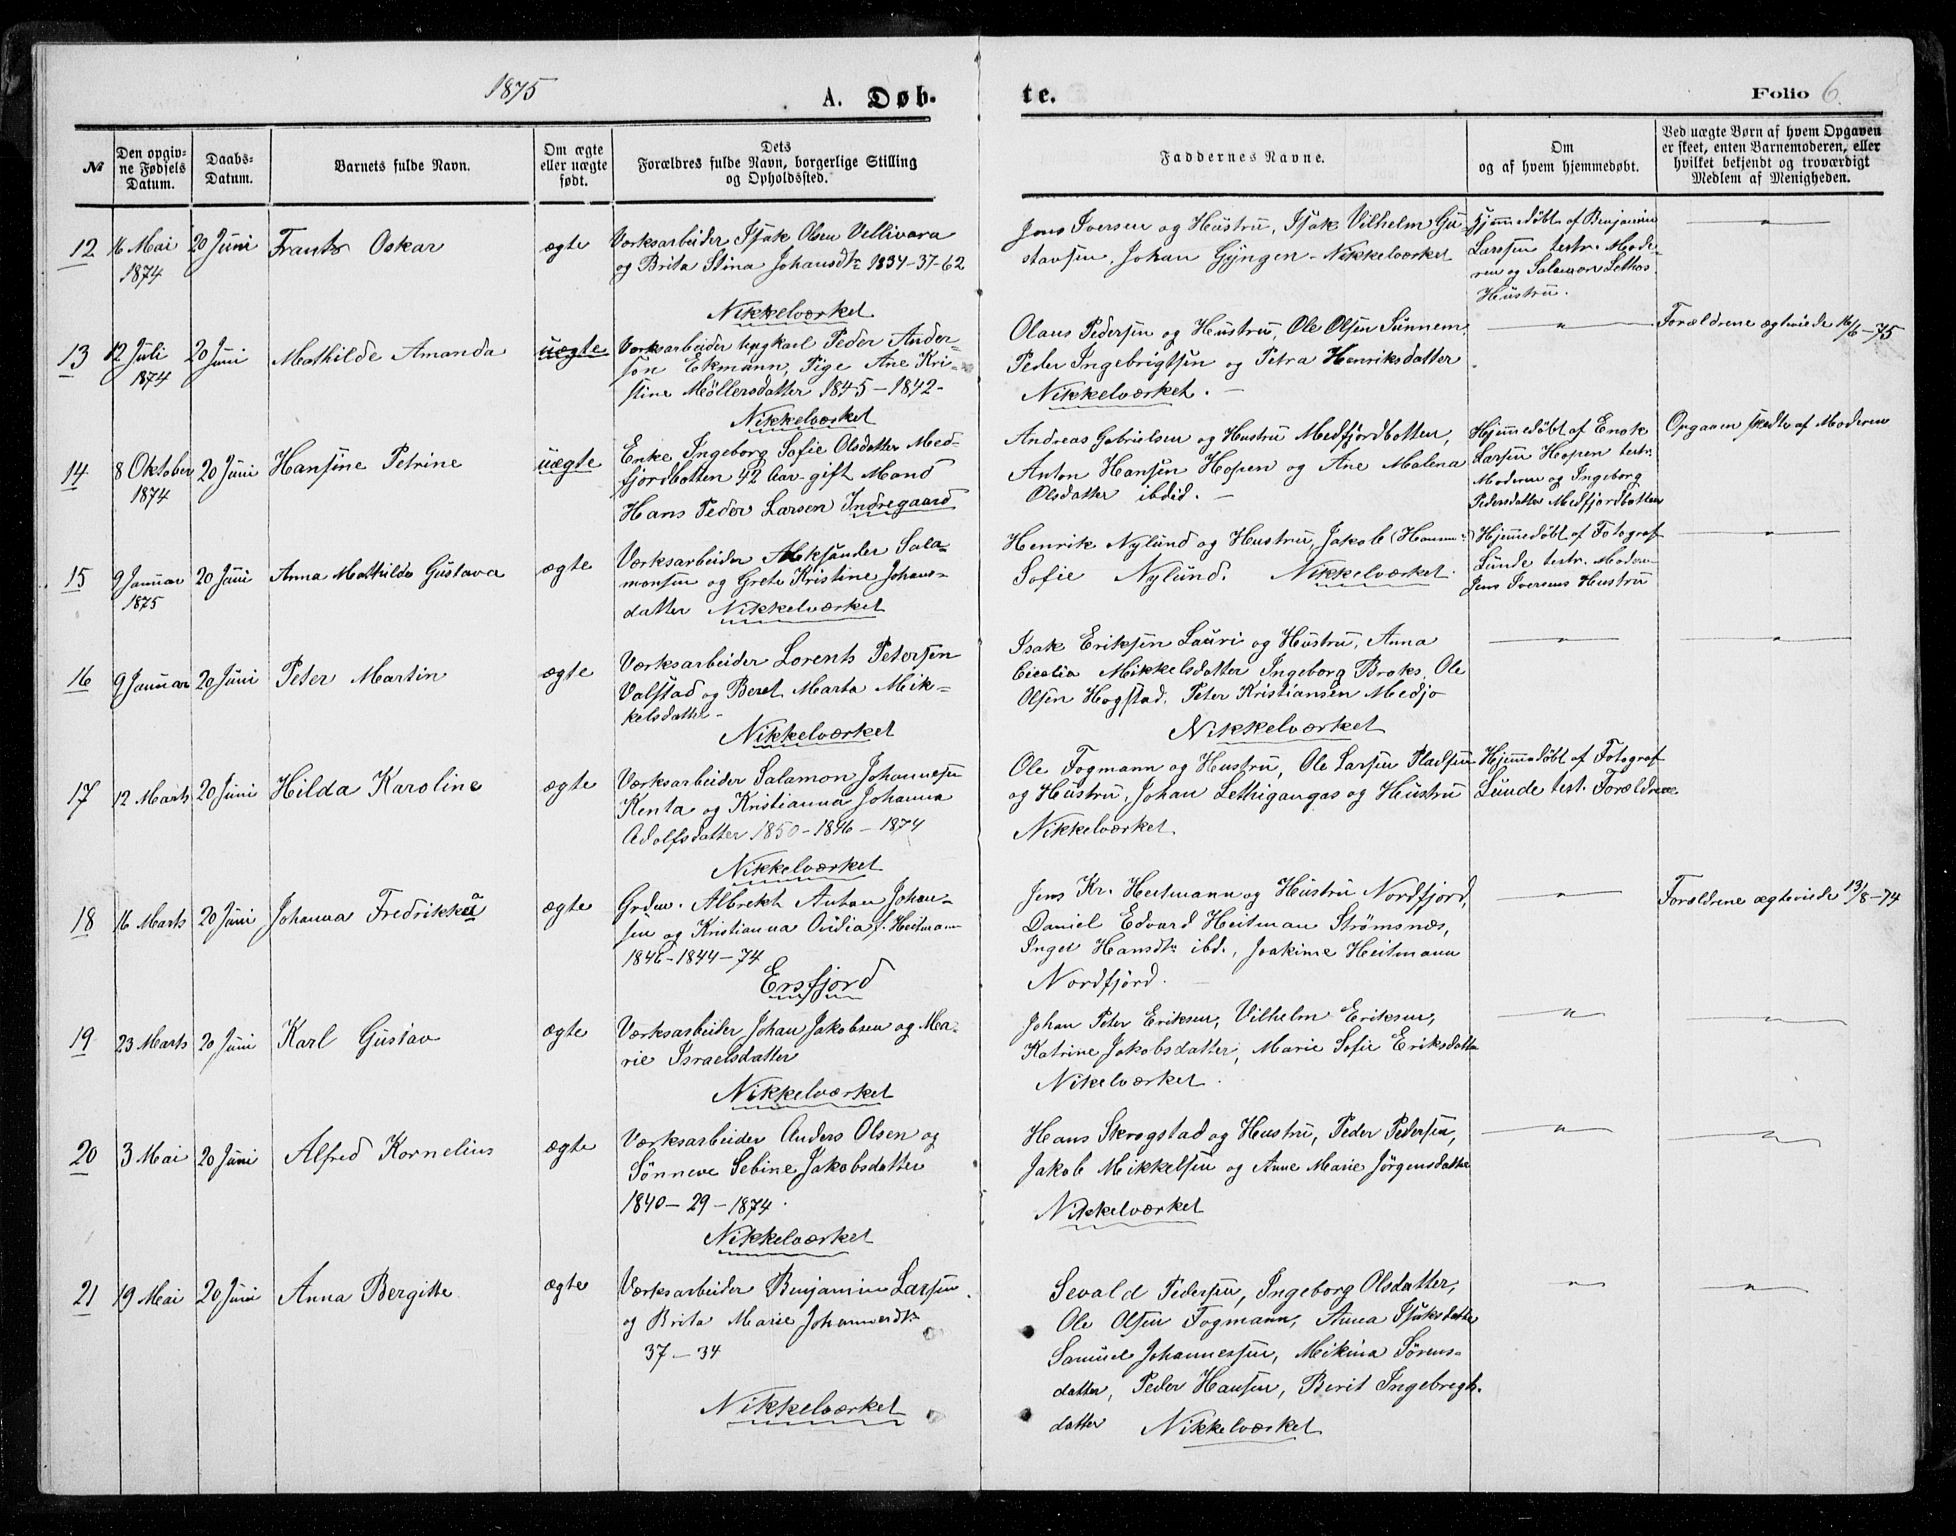 1875
A. Døb-
te.
Folio 6.
№
Den opgiv-
ne Fødsels
Datum.
Daabs-
Datum.
Barnets fulde Navn.
Om ægte
eller uægte
født.
Dets
Forældres fulde Navn, borgerlige Stilling
og Opholdssted.
Faddernes Navne.
Om
og af hvem hjemmedøbt.
Ved uægte Børn af hvem Opgaven
er skeet, enten Barnemoderen, eller
hvilket bekjendt og troværdigt
Medlem af Menigheden.
12
16 Mai
1874
20 Juni
Frants Oskar
ægte
Værksarbeider Isak Olsen Vellivara
og Brita Stina Johansdtr 1834-37-62
Nikkelværket
Jens Iversen og Hustru, Isak Vilhelm Gu-
stavsen, Johan Gyngen - Nikkelværket
Hjemmedøbt af Benjamin
Larssen testr. Mode-
ren og Salamon Lethos
Hustru.
13
12 Juli
1874
20 Juni
Mathilde Amanda
uægte
Værksarbeider Ungkarl Peder Ander-
son Ekmann, Pige Ane Kri-
stine Møllersdatter 1845-1842-
Nikkelværket
Olaus Pedersen og Hustru, Ole Olsen Sunnem
Peder Ingebrigtsen og Petra Henriksdatter
Nikkelværket.
Forældrene ægteviede 16/6-75
14
8 Oktober
1874
20 Juni
Hansine Petrine
uægte
Enke Ingeborg Sofie Olsdatter Med-
fjordbotten 42 Aar - gift Mand
Hans Peder Larsen Indregaard
Andreas Gabrielsen og Hustru Medfjordbotten,
Anton Hansen Hopen og Ane Malena
Olsdatter ibdid. -
Hjemmedøbt af Enok
Larsen Hopen testr.
Moderen og Ingeborg
Pedersdatter Medfjordbotten
Opgaven skedte af Moderen
15
9 Januar
1875
20 Juni
Anna Mathilde Gustava
ægte
Værksarbeider Aleksander Sala-
monsen og Grete Kristine Johans-
datter Nikkelværket
Henrik Nylund og Hustru, Jakob
Sofie Nylund. Nikkelværket.
Hjemmedøbt af Fotograf
Lunde testr. Moderen
Jens Iversens Hustru
16
9 Januar
20 Juni
Peter Martin
ægte
Værksarbeider Lorents Petersen
Valstad og Beret Marta Mik-
kelsdatter
Nikkelværket
Isak Eriksen Lauri og Hustru, Anna
Cicelia Mikkelsdatter Ingeborg Broks, Ole
Olsen Hogstad, Peter Kristiansen Medjo
Nikkelværket
17
12 Marts
20 Juni
Hilda Karoline
ægte
Værksarbeider Salamon Johannesen
Kenta og Kristianna Johanna
Adolfsdatter 1850-1846-1874
Nikkelværket
Ole Fogmann og Hustru, Ole Larsen Pladsen
og Hustru, Johan Lethigangas og Hustru
Nikkelværket.
Hjemmedøbt af Fotograf
Lunde test. Forældrene
18
16 Marts
20 Juni
Johanna Fredrikka
a
ægte
Grdm. Albrekt Anton Johan-
sen og Kristianna Ovidia f. Heitmann
1846-1844-74
Ersfjord
Jens Kr. Heitmann og Hustru Nordfjord,
Daniel Edvard Heitman Strømsnæs,
Inger Hansdtr ibd., Joakime Heitmann
Nordfjord.
Forældrene ægteviede 13/8-74
19
23 Marts
20 Juni
Karl Gustav
ægte
Værksarbeider Johan Jakobsen og Ma-
rie Israelsdatter
Nikkelværket
Johan Peter Eriksen, Vilhelm Eriksen,
Katrine Jakobsdatter, Marie Sofie Eriksdatter
Nikelværket.
20
3 Mai
20 Juni
Alfred Kornelius
ægte
Værksarbeider Anders Olsen og
Sønneve Sebine Jakobsdatter
1840-29-1874.
Nikkelværket
Hans Skrogstad og Hustru, Peder Pedersen,
Jakob Mikkelsen og Anne Marie Jørgensdatter
Nikkelværket
21
19 Mai
20 Juni
Anna Bergitte
ægte
Værksarbeider Benjamin Larsen
og Brita Marie Johannesdtr
37-34
Nikkelværket
Sevald Pedersen, Ingeborg Olsdatter,
Ole Olsen Fogmann, Anna Isaksdatter
Samuel Johannessen, Mikina Sørens-
datter, Peder Hansen, Berit Ingebregts-
datter Nikkelværket